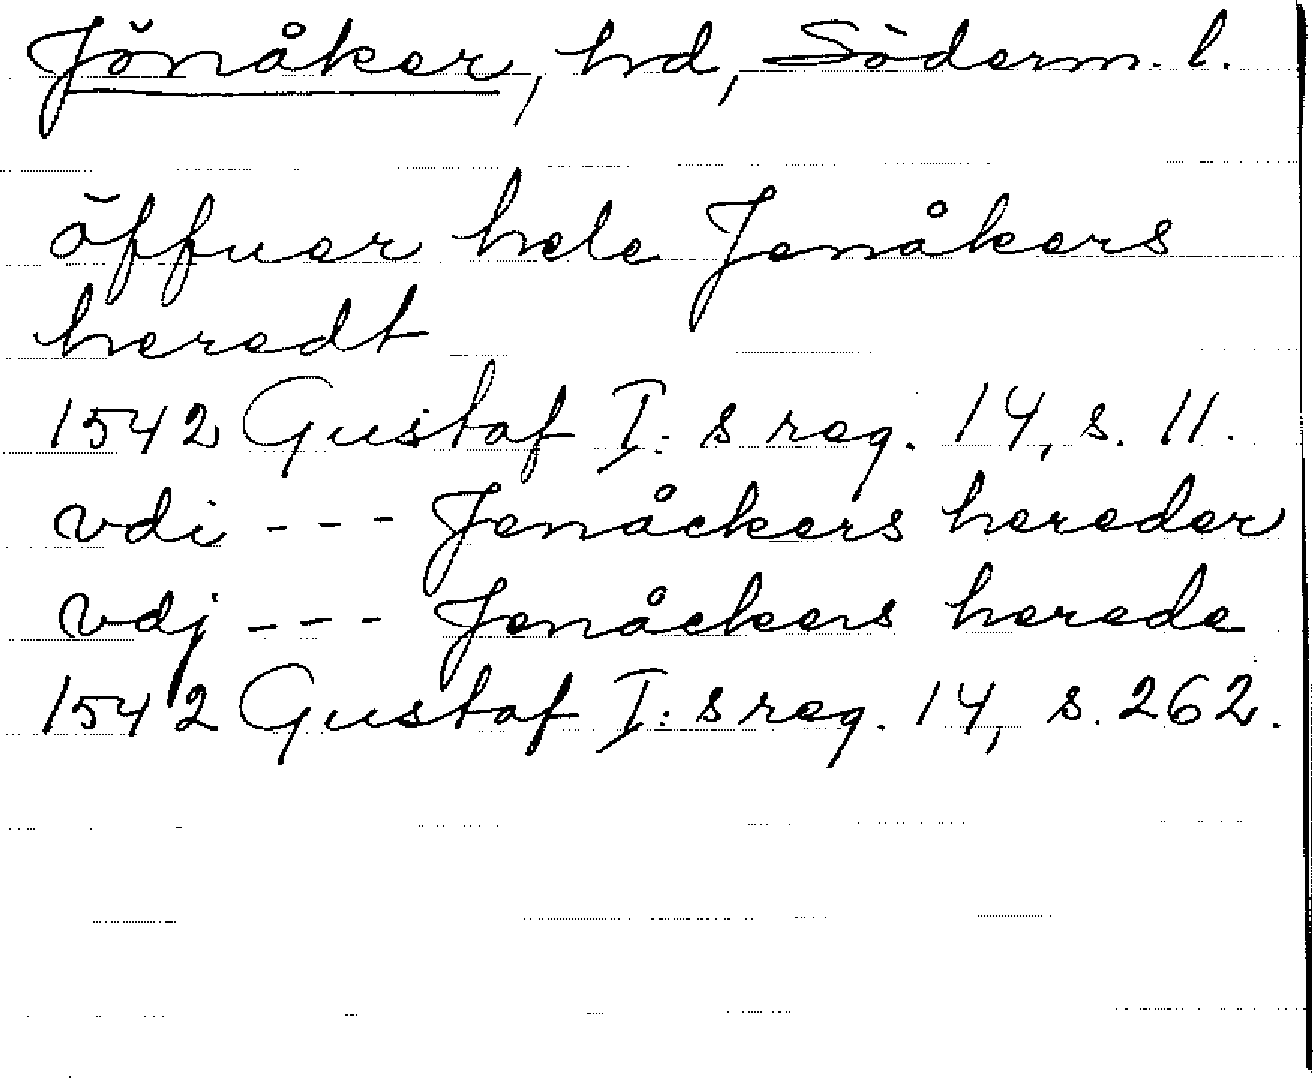 Jönåker, hd, Söderm. l.
öffuer hele Jenåkers
heredt
1542 Gustaf I:s reg. 14, s. 11.
vdi - - - Jenåckers hereder
vdj - - - Jenåckers herede
1542 Gustaf I:s reg. 14, s. 262.